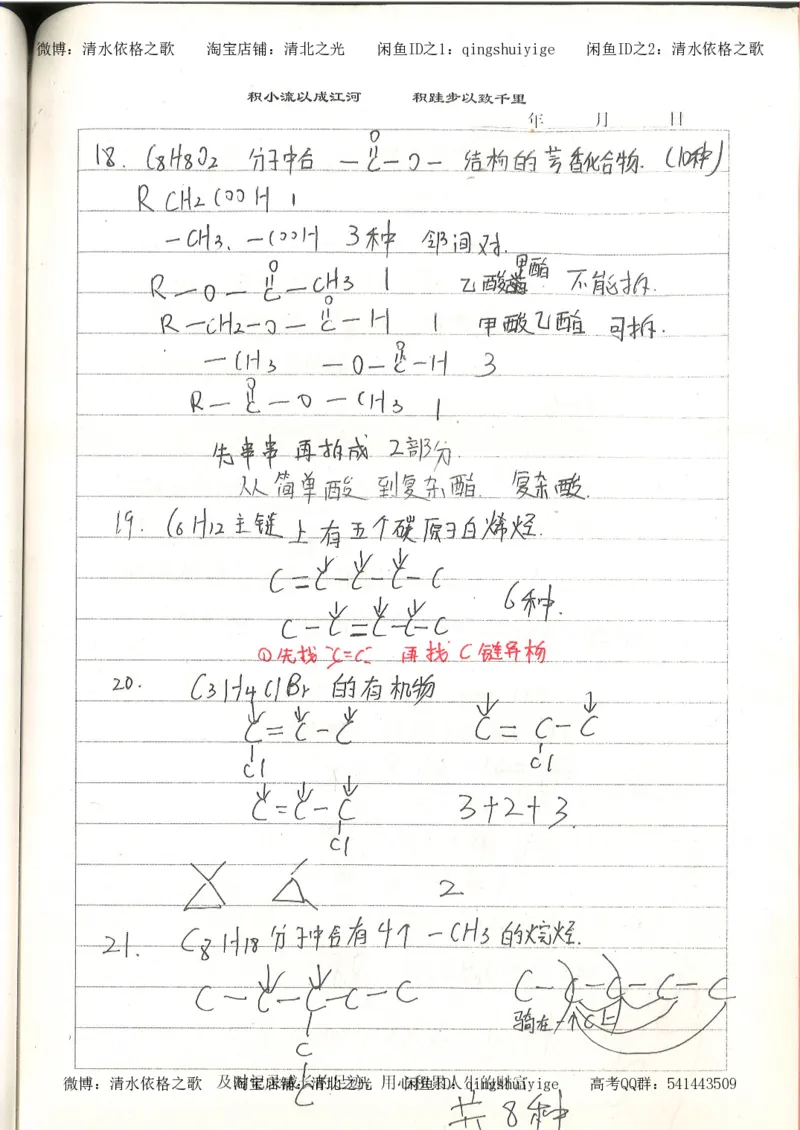 微博：清水依格之歌 淘宝店铺：清北之光 闲鱼ID之1：qingshuiyige 闲鱼ID之2：清水依格之歌
积小流以成江河 积跬步以致千里
年 月 日
18. C8H8O2 分子中含 —C—O— 结构的芳香化合物. (10种)
O
RCH2COOH 1
—CH3、—COOH 3种 邻间对.
O
R—O—C—CH3 1 乙酸甲酯 不能拆.
O
R—CH2—O—C—H 1 甲酸乙酯 可拆.
O
—CH3 —O—C—H 3
O
R—C—O—CH3 1
先串串 再拆成 2部分.
从简单酸 到复杂酯. 复杂酸.
19. C6H12主链上有五个碳原子的烯烃.
C=C—C—C—C
6种.
C—C=C—C—C
①先找C=C 再找C链异构
20. C3H4ClBr 的有机物
C=C—C C=C—C
Cl Cl
C=C—C 3+2+3.
Cl
2
21. C8H18分子中含有4个—CH3的烷烃.
C—C—C—C—C C—C—C—C—C
骑在一个C上
C
C
微博：清水依格之歌 淘宝店铺：清北之光 闲鱼ID：qingshuiyige 高考QQ群：541443509
共8种